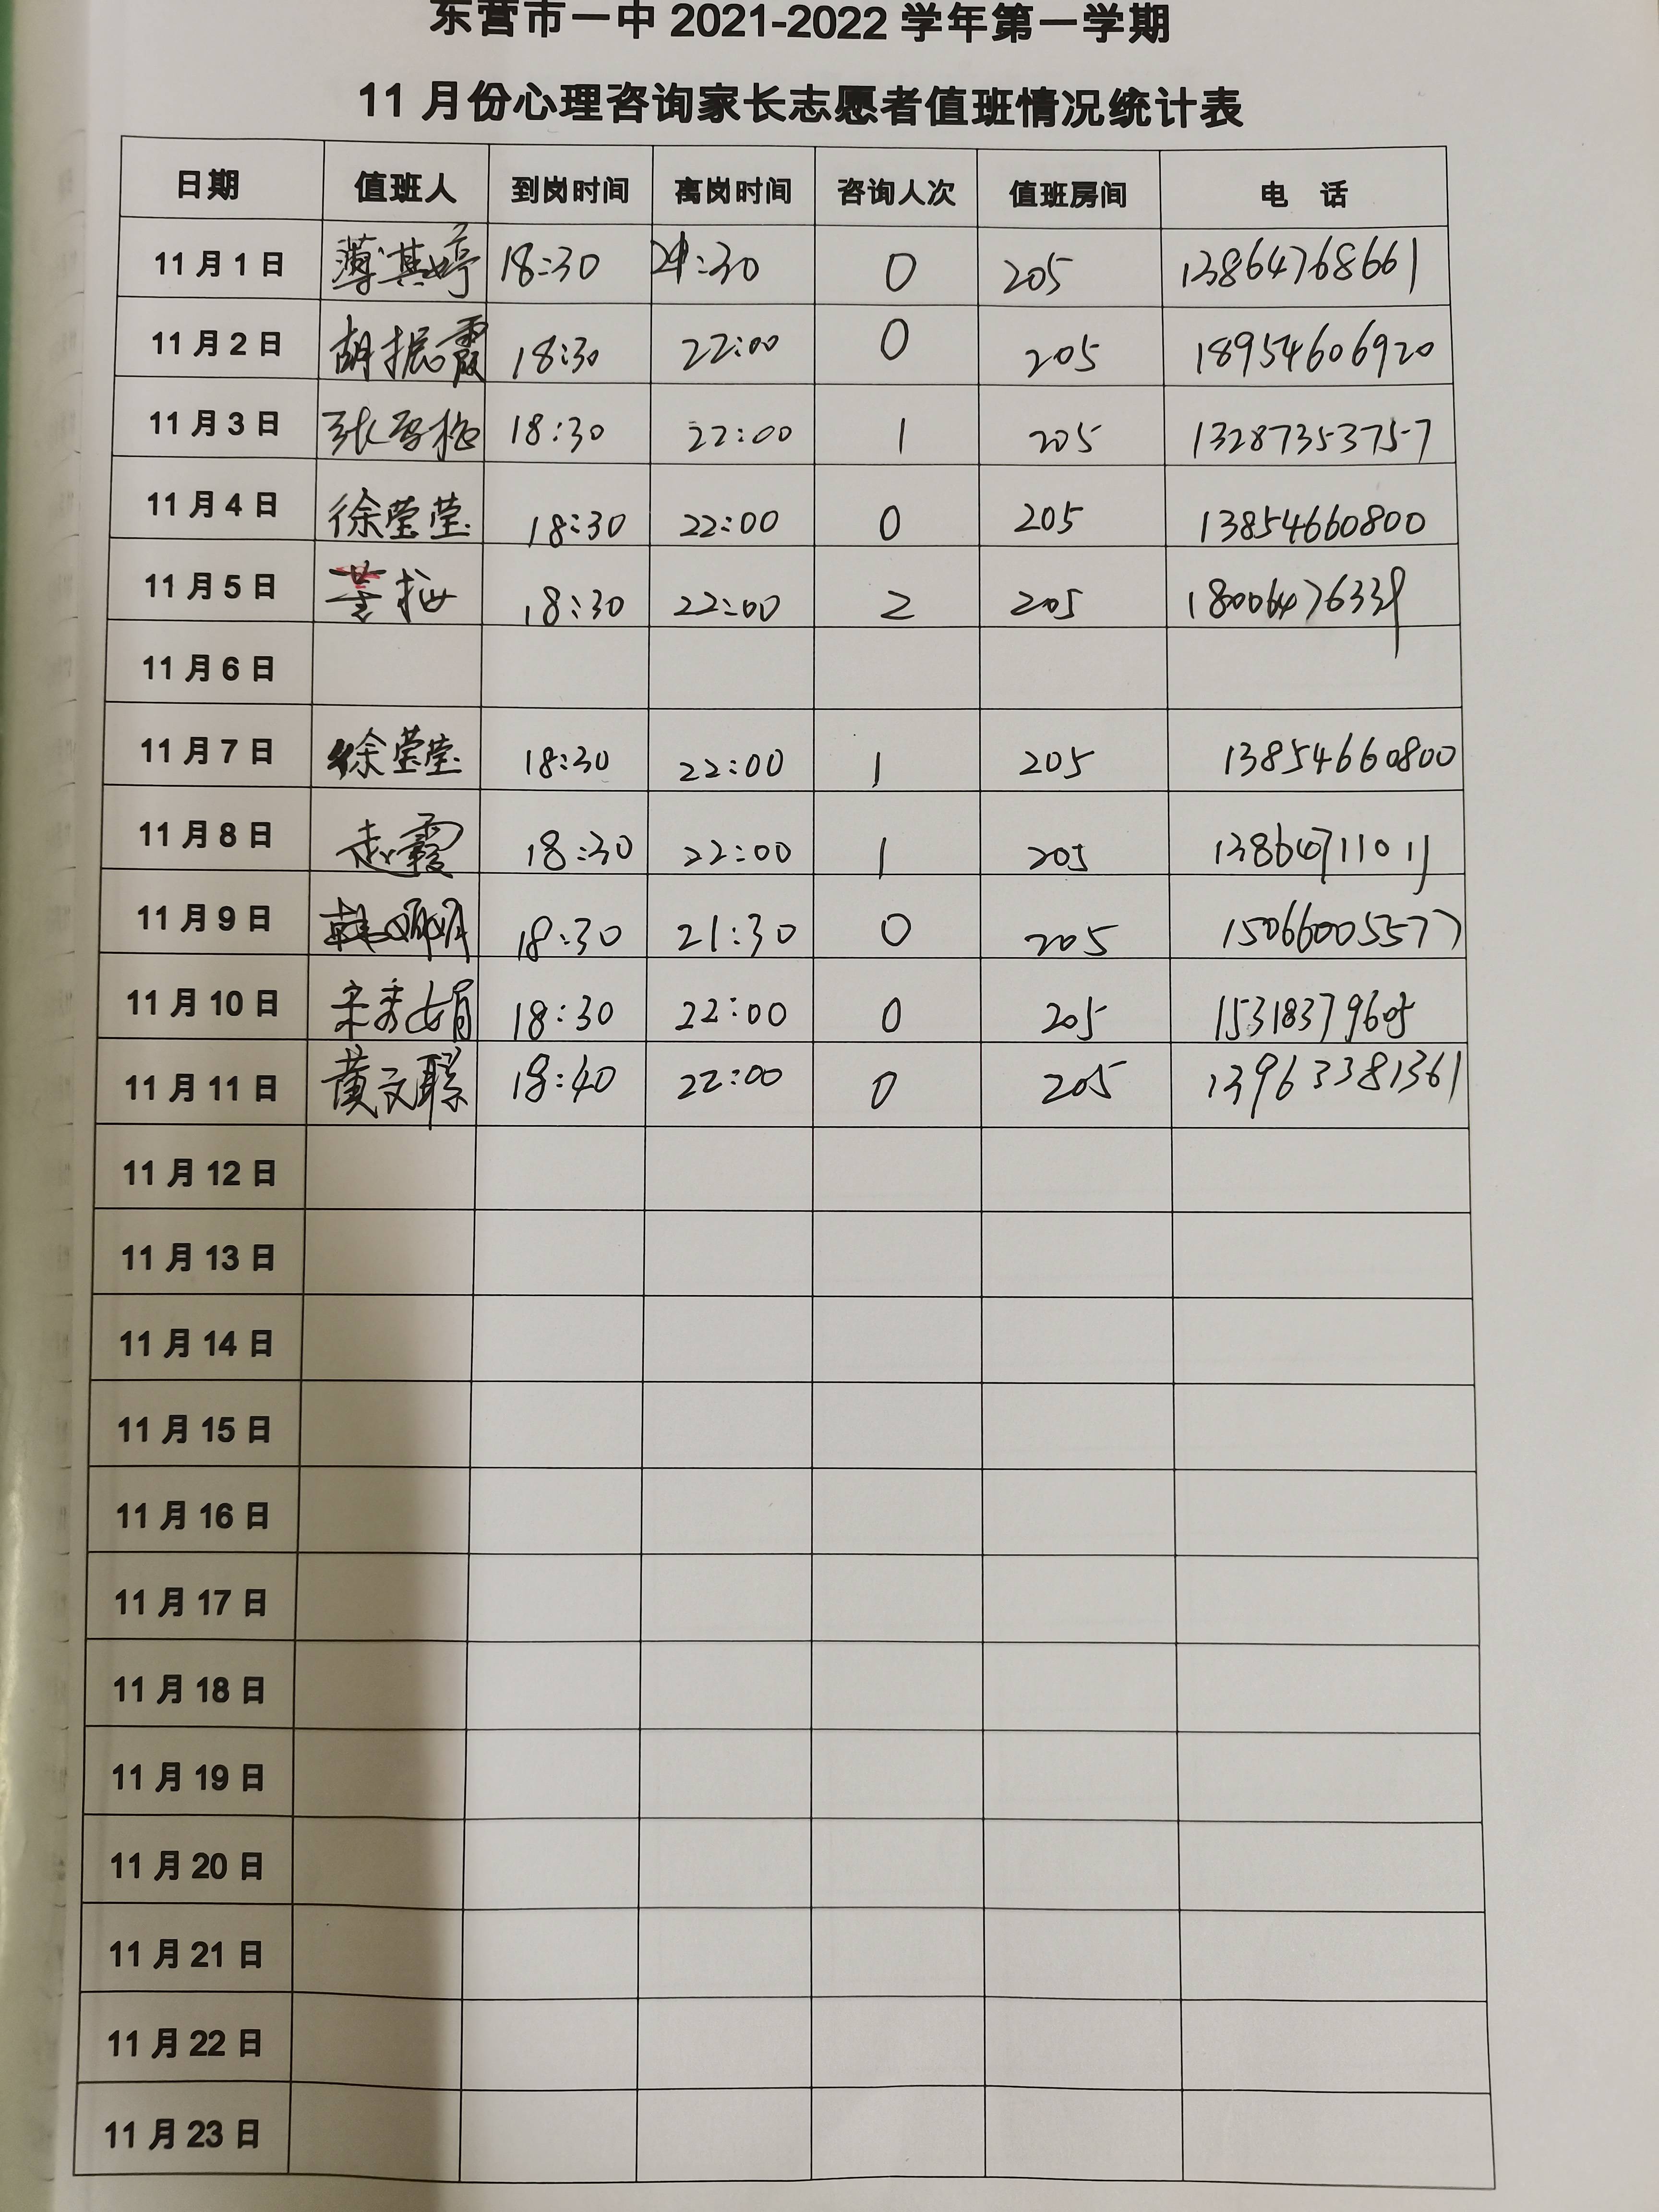 东营市一中 2021-2022 学年第一学期
11 月份心理咨询家长志愿者值班情况统计表
日期 值班人 到岗时间 离岗时间 咨询人次 值班房间 电 话
11 月 1 日 薄其婷 18:30 21:30 0 205 13864768661
11 月 2 日 胡振霞 18:30 22:00 0 205 18954606920
11 月 3 日 张雪梅 18:30 22:00 1 205 13287353757
11 月 4 日 徐莹莹 18:30 22:00 0 205 13854660800
11 月 5 日 18:30 22:00 2 205 18006476339
11 月 6 日
11 月 7 日 徐莹莹 18:30 22:00 1 205 13854660800
11 月 8 日 赵霞 18:30 22:00 1 205 13864711011
11 月 9 日 18:30 21:30 0 205 15066005577
11 月 10 日 宋秀娟 18:30 22:00 0 205 15318379605
11 月 11 日 黄文聪 18:40 22:00 0 205 13963381361
11 月 12 日
11 月 13 日
11 月 14 日
11 月 15 日
11 月 16 日
11 月 17 日
11 月 18 日
11 月 19 日
11 月 20 日
11 月 21 日
11 月 22 日
11 月 23 日